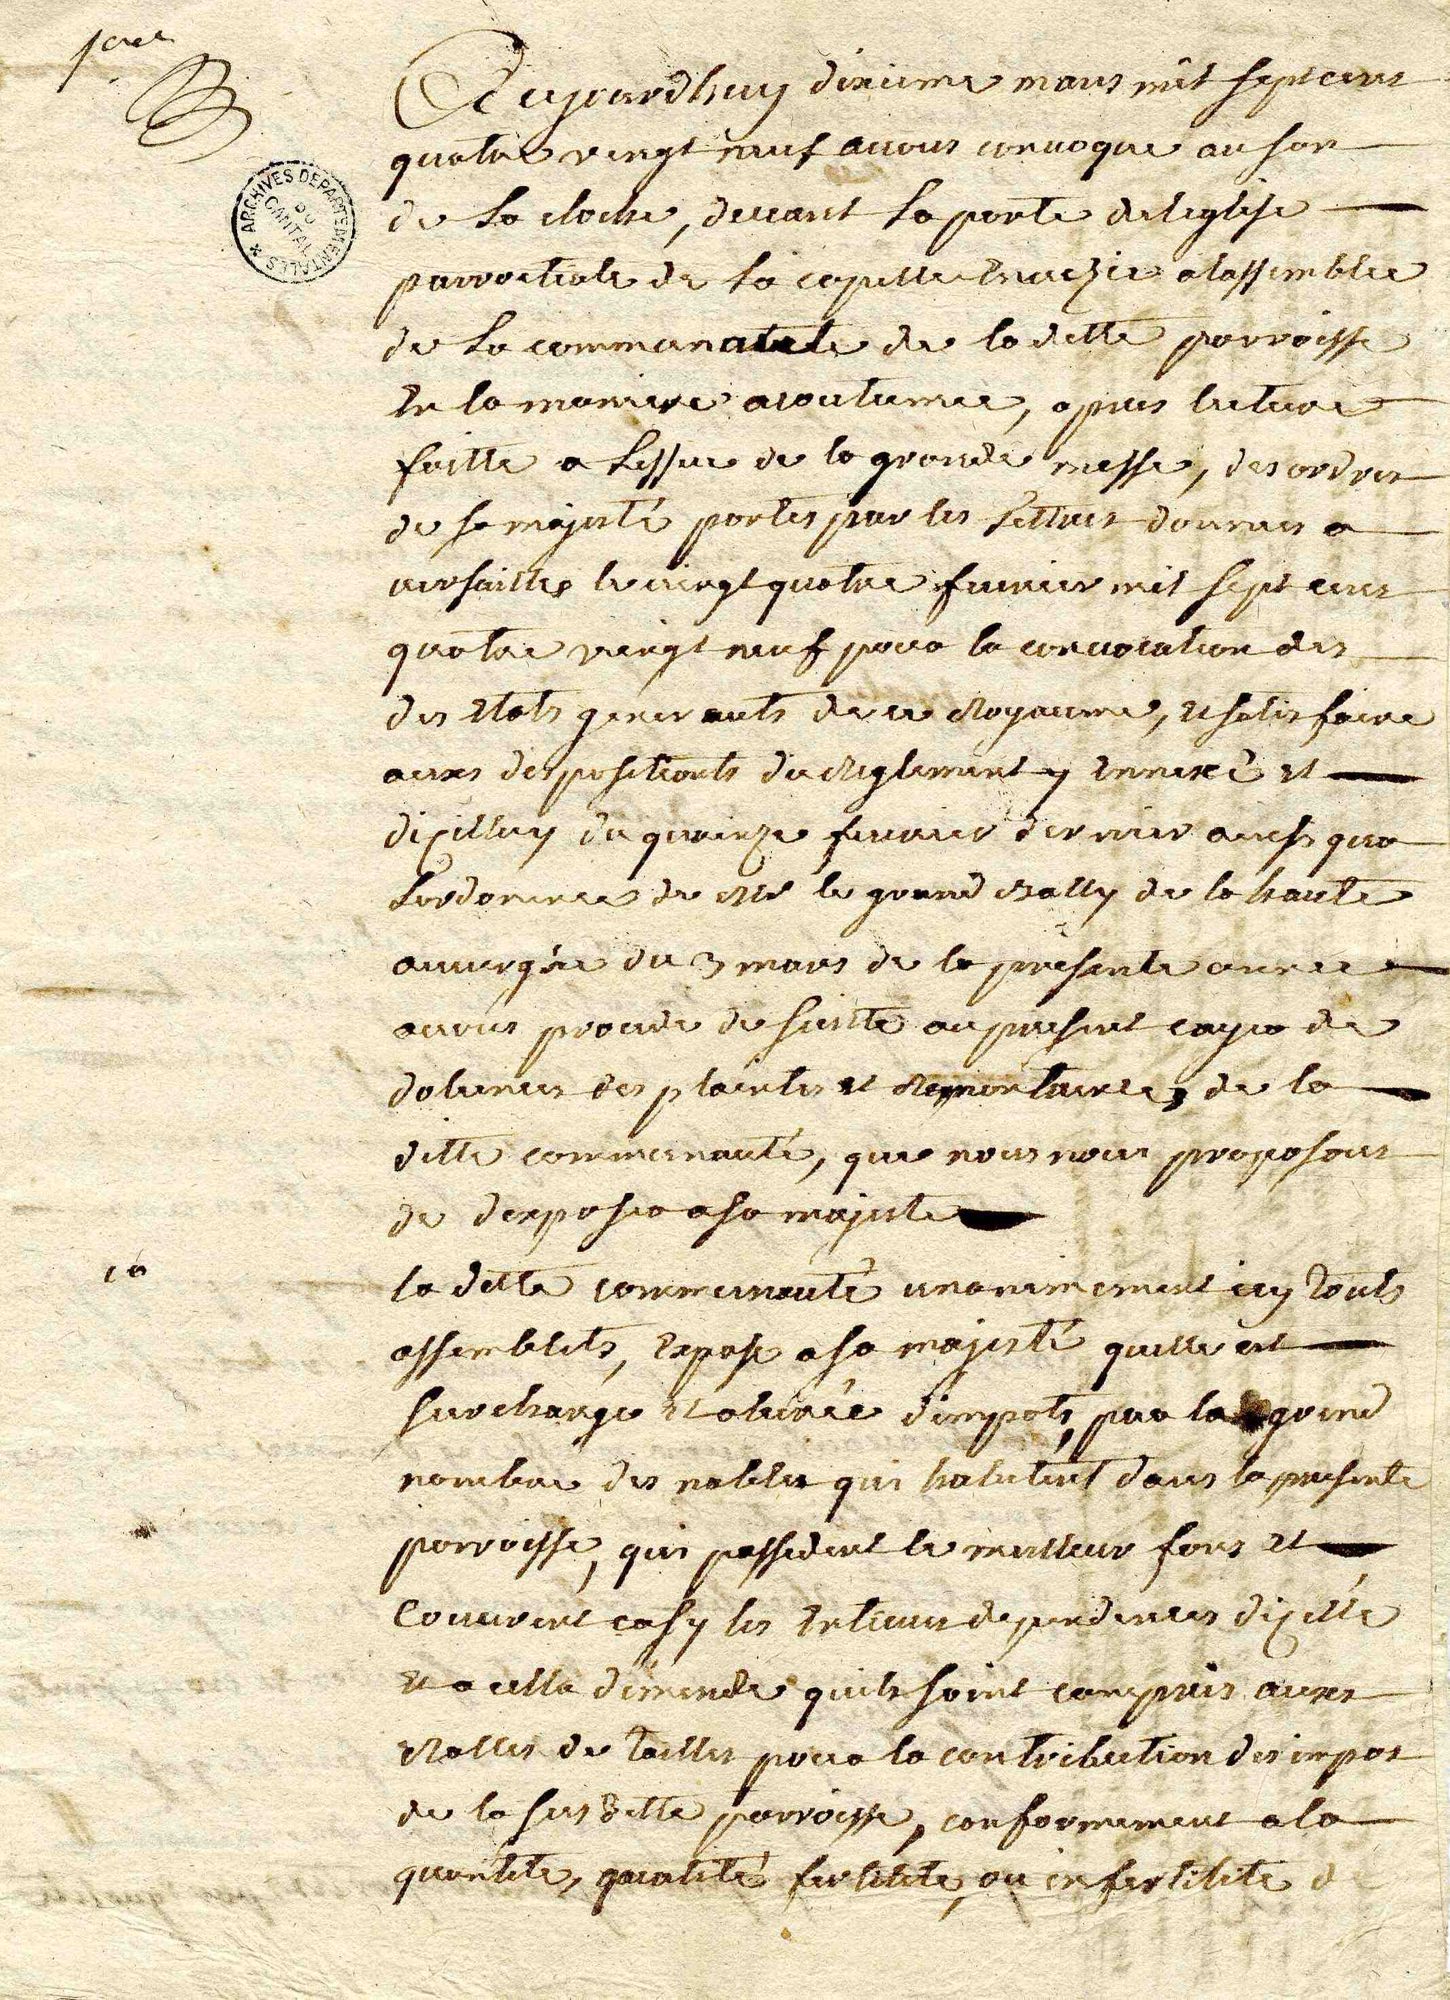 1ere
ARCHIVES DEPARTEMENTALES
DU
CANTAL
Aujourdhuy dixieme mars mil sept cens
quatre vingt neuf avons convoque au son
de la cloche, devant la porte de leglise
parroctiale de la capelle Enuezie a lassemblee
de la communaute de la ditte parroisse
En la maniere acoutumee, apres lecture
faitte a lessue de la grande messe, des ordres
de sa majesté portes par les lettres donnees a
versailles le vingt quatre fevrier mil sept cens
quatre vingt neuf pour la convocation des
des Etats generauts de ce Royaume, et satisfaire
auxes despositionts du Reglement y Ennexé et
dicelluy du quainze fevrier dernier ainsy que
Lordonence de Mr le grand Bally de la haute
auvergne du 3 mars de la presente annee
avons procede de suitte au present cayer de
dolences des plaintes et Remontance, de la
ditte communauté, que nous nous proposons
de dexposer a sa majeste
1o
la ditte communauté unanimement icy Touts
assemblets, Expose a sa majesté quelle est
surcharge et oberée dimpots, par la grend
nombre des nobles qui habitent dans la presente
parroisse, qui possedent le meilleur fons et
Couvrent casy les Entieres dependences dicelle
et a cella demende quils soint compris auxes
Rolles de Tailles pour la contribution des impos
de la sus ditte parroisse, conformement a la
quantite, qualité fertilite, ou infertilite d